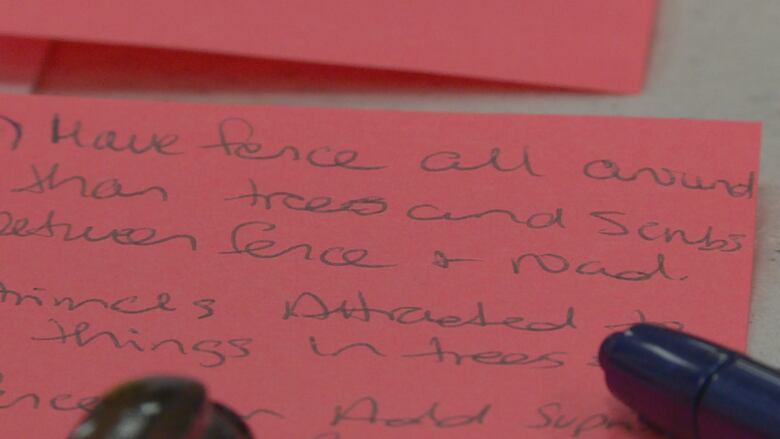 ) Have fence all around
than trees and Scrubs
between fence + road.
Attracted to
things in trees
Add